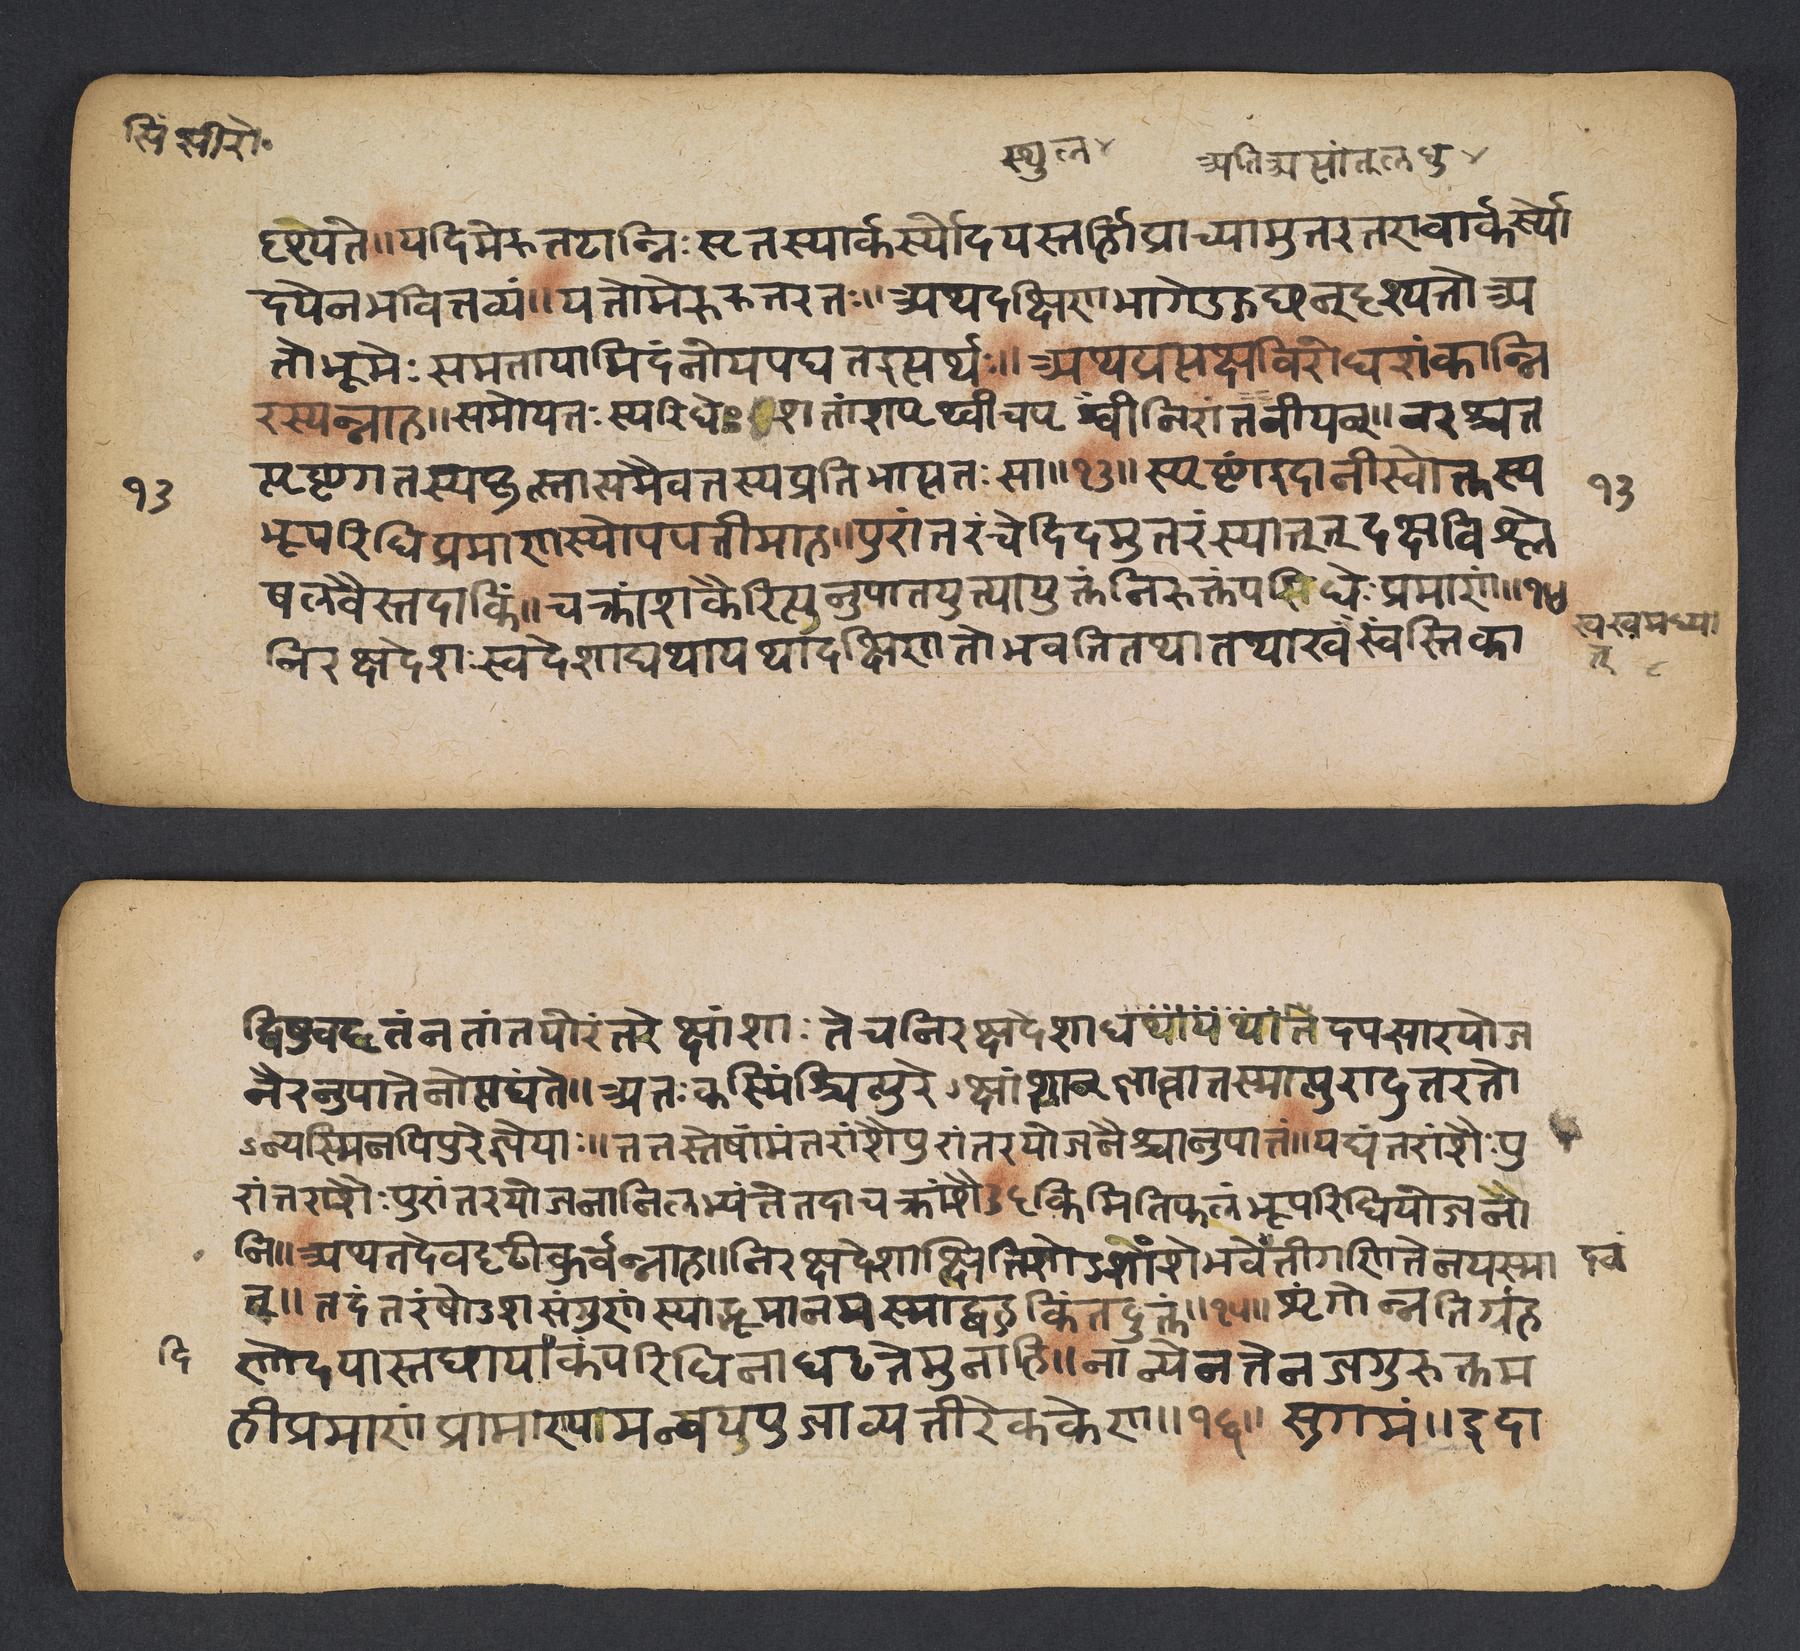 सिं सीरो॰
स्थुल अतिअसांतूलघु
दृश्येते॥यदिमेरुतटान्निःसृतस्यार्कस्योदयस्तर्हिप्राच्यामुत्तरतरावार्कस्यो
दयेनभवितव्यं॥यतोमेरुरुत्तरतः॥अथदक्षिणभागेऽनद्यन्दृश्यतोअ
तोभूमेःसमतायामिदंनोयपद्यतइत्यर्थः॥अथप्रत्यक्षविरोधशंकान्नि
रस्यन्नाह॥समोयतःस्यरिधेः शतांशपृथ्वीचपृथ्वीनितरांतनीयान्॥नरश्चत
त्पृष्ठगतस्यकृत्स्नासमेवतस्यप्रतिभात्यतःसा॥१३॥स्पष्टंइदानीस्वोक्तस्य
१३
१३
भूपरिधिप्रमाणस्योपपत्तीमाह॥पुरांतरंचेदिदमुत्तरंस्यात्तदक्षविश्ले
षलवैस्तदाकिं॥चक्रांशकैरित्यनुपातयुत्त्यायुक्तंनिरुक्तंपरिधेःप्रमाणं॥१४
निरक्षदेशःस्वदेशाद्यथायथादक्षिणतोभवतितथातथाखंस्वंस्तिका
खखमध्या
त्
द्विषुवद्वृतंनतांतयोरंतरेक्षांशाःतेचनिरक्षदेशाद्यथायथांतेदपसारयोज
नैरनुपातेनोत्पद्यंते॥अतःकस्मिंश्चित्पुरेऽक्षांशान्ज्ञात्वातस्मात्पुरादुत्तरतो
ऽन्यस्मिनपिपुरेज्ञेयाः॥ततस्तेषामंतरांशैपुरांतरयोजनैश्चानुपातं॥यद्यंतरांशैःपु
रांतरांशैःपुरांतरयोजनानिलभ्यंतेतदाचक्रांशै३६किमितिफलंभूपरिधियोजनो
नि॥अथतदेवदृढीकुर्वन्नाह॥निरक्षदेशात्क्षितिषोऽशांशेभवेत्तीगणितेनयस्मा
दवं
त्॥तदंतरंषोऽशसंगुणंस्याद्भूमानमस्माद्बहुकिंतदुक्तं॥१५॥शृंगोन्नतिर्ग्रह
दि
णोदयास्तछायांकंपरिधिनाघटतेमुनाहि॥नान्येनतेनजगुरुक्तम
हीप्रमाणंप्रामाण्यामन्वययुजाव्यतीरेककेण॥१६॥सुगमं॥इदा